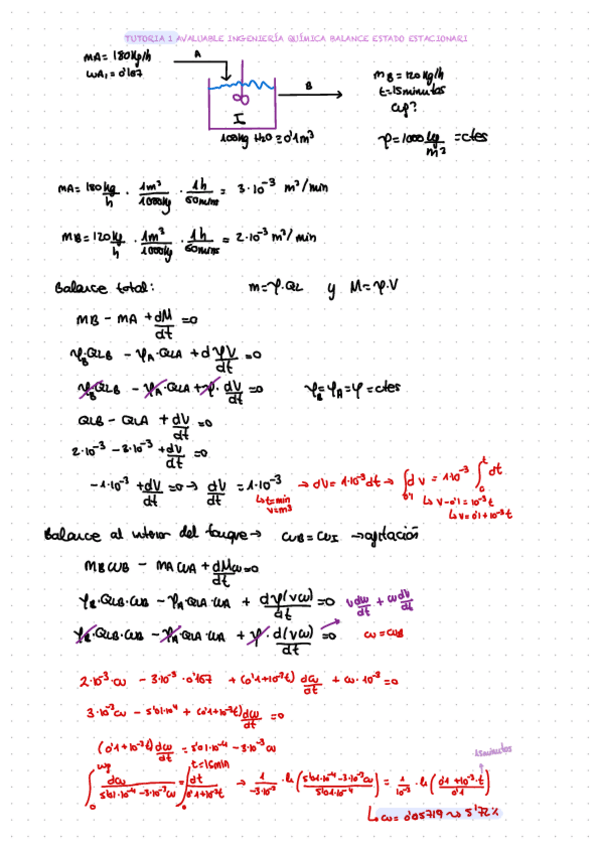 TUTORIA 1 AVALUABLE INGENIERÍA QUÍMICA BALANCE ESTADO ESTACIONARI
mA = 180kg/h
wA₁ = 0'167
A
B
I
100kg H₂O = 0'1m³
mB = 120kg/h
t = 15minutos
ωB?
φ = 1000 kg/m³ = ctes
mA = 180 kg/h · 1m³/1000kg · 1h/60mins = 3·10⁻³ m³/min
mB = 120 kg/h · 1m³/1000kg · 1h/60mins = 2·10⁻³ m³/min
Balance total: m = φ·QL y M = φ·V
mB - mA + dM/dt = 0
φB·QLB - φA·QLA + dφV/dt = 0
φB·QLB - φA·QLA + φ·dV/dt = 0 φB = φA = φ = ctes
QLB - QLA + dV/dt = 0
2·10⁻³ - 3·10⁻³ + dV/dt = 0
-1·10⁻³ + dV/dt = 0 → dV/dt = 1·10⁻³ → dV = 1·10⁻³ dt → ∫₀'₁ dV = 1·10⁻³ ∫₀ᵗ dt
↳ t = min
V = m³
↳ V - 0'1 = 10⁻³t
↳ V = 0'1 + 10⁻³t
Balance al interior del tanque → ωB = ωI → agitación
mB ωB - mA ωA + dMω/dt = 0
φB·QLB·ωB - φA·QLA·ωA + dφ(Vω)/dt = 0 Vdω/dt + ωdV/dt
φB·QLB·ωB - φA·QLA·ωA + φ·d(Vω)/dt = 0 ω = ωB
2·10⁻³·ω - 3·10⁻³·0'167 + (0'1+10⁻³t) dω/dt + ω·10⁻³ = 0
3·10⁻³ω - 5'01·10⁻⁴ + (0'1+10⁻³t) dω/dt = 0
(0'1+10⁻³t) dω/dt = 5'01·10⁻⁴ - 3·10⁻³ω
15minutos
∫₀^ωB dω/(5'01·10⁻⁴ - 3·10⁻³ω) = ∫₀^t=15min dt/(0'1+10⁻³t) → 1/(-3·10⁻³) · ln((5'01·10⁻⁴ - 3·10⁻³ω)/(5'01·10⁻⁴)) = 1/10⁻³ · ln((0'1+10⁻³·t)/0'1)
↳ ω = 0'05719 ⇝ 5'72%